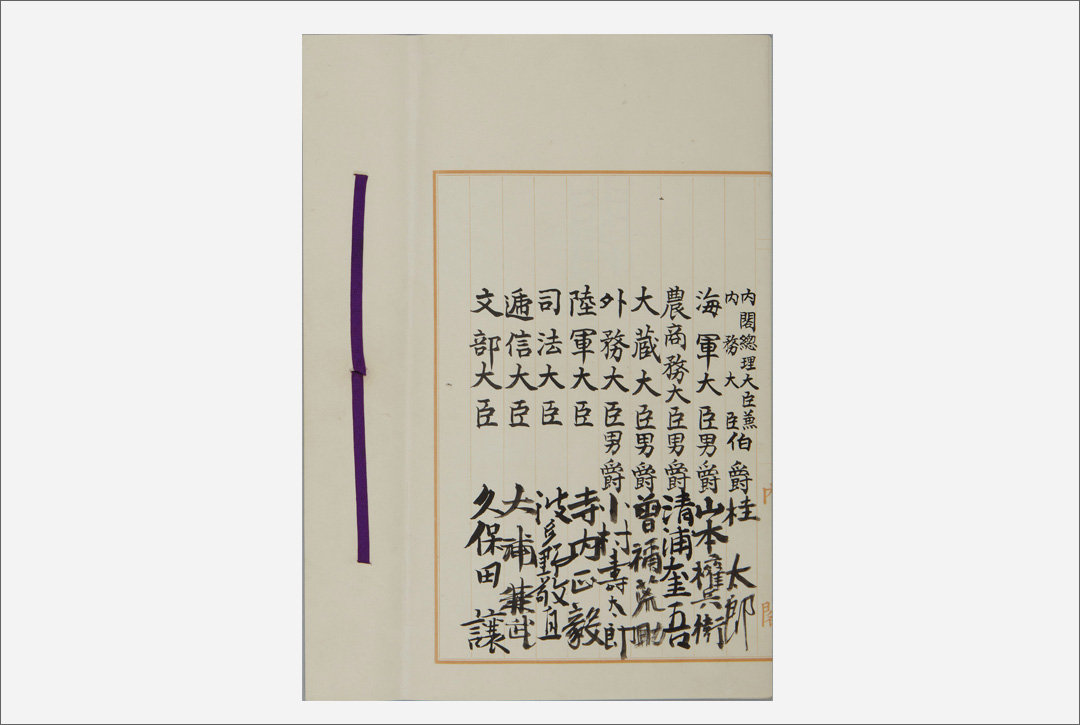 内閣總理大臣兼
内務大臣伯爵桂太郎
海軍大臣男爵山本權兵衛
農商務大臣男爵清浦奎吾
大蔵大臣男爵曾禰荒助
外務大臣男爵小村壽太郎
陸軍大臣寺内正毅
司法大臣波多野敬直
逓信大臣大浦兼武
文部大臣久保田讓
内閣